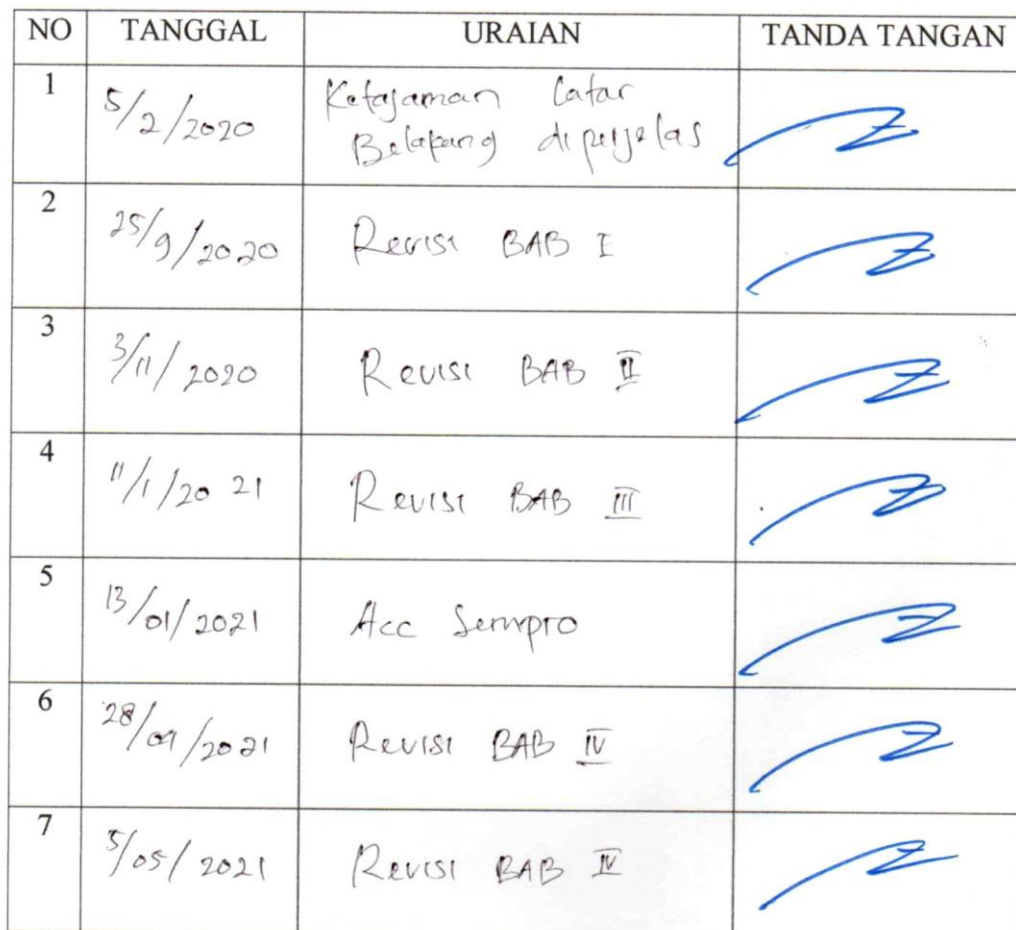 NO TANGGAL URAIAN TANDA TANGAN
1 5/2/2020 Ketajaman Latar
Belakang diperjelas
2 25/9/2020 Revisi BAB I
3 3/11/2020 Revisi BAB II
4 11/1/2021 Revisi BAB III
5 13/01/2021 Acc Sempro
6 28/04/2021 Revisi BAB IV
7 5/05/2021 Revisi BAB IV